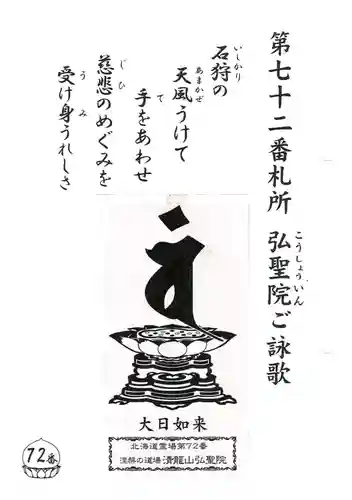 第七十二番札所 弘聖院ご詠歌
こうしょういん
石狩の
いしかり
天風うけて
あまかぜ
手をあわせ
て
慈悲のめぐみを
じひ
受け身うれしさ
うみ
大日如来
北海道霊場第72番
涅槃の道場 清龍山弘聖院
72番